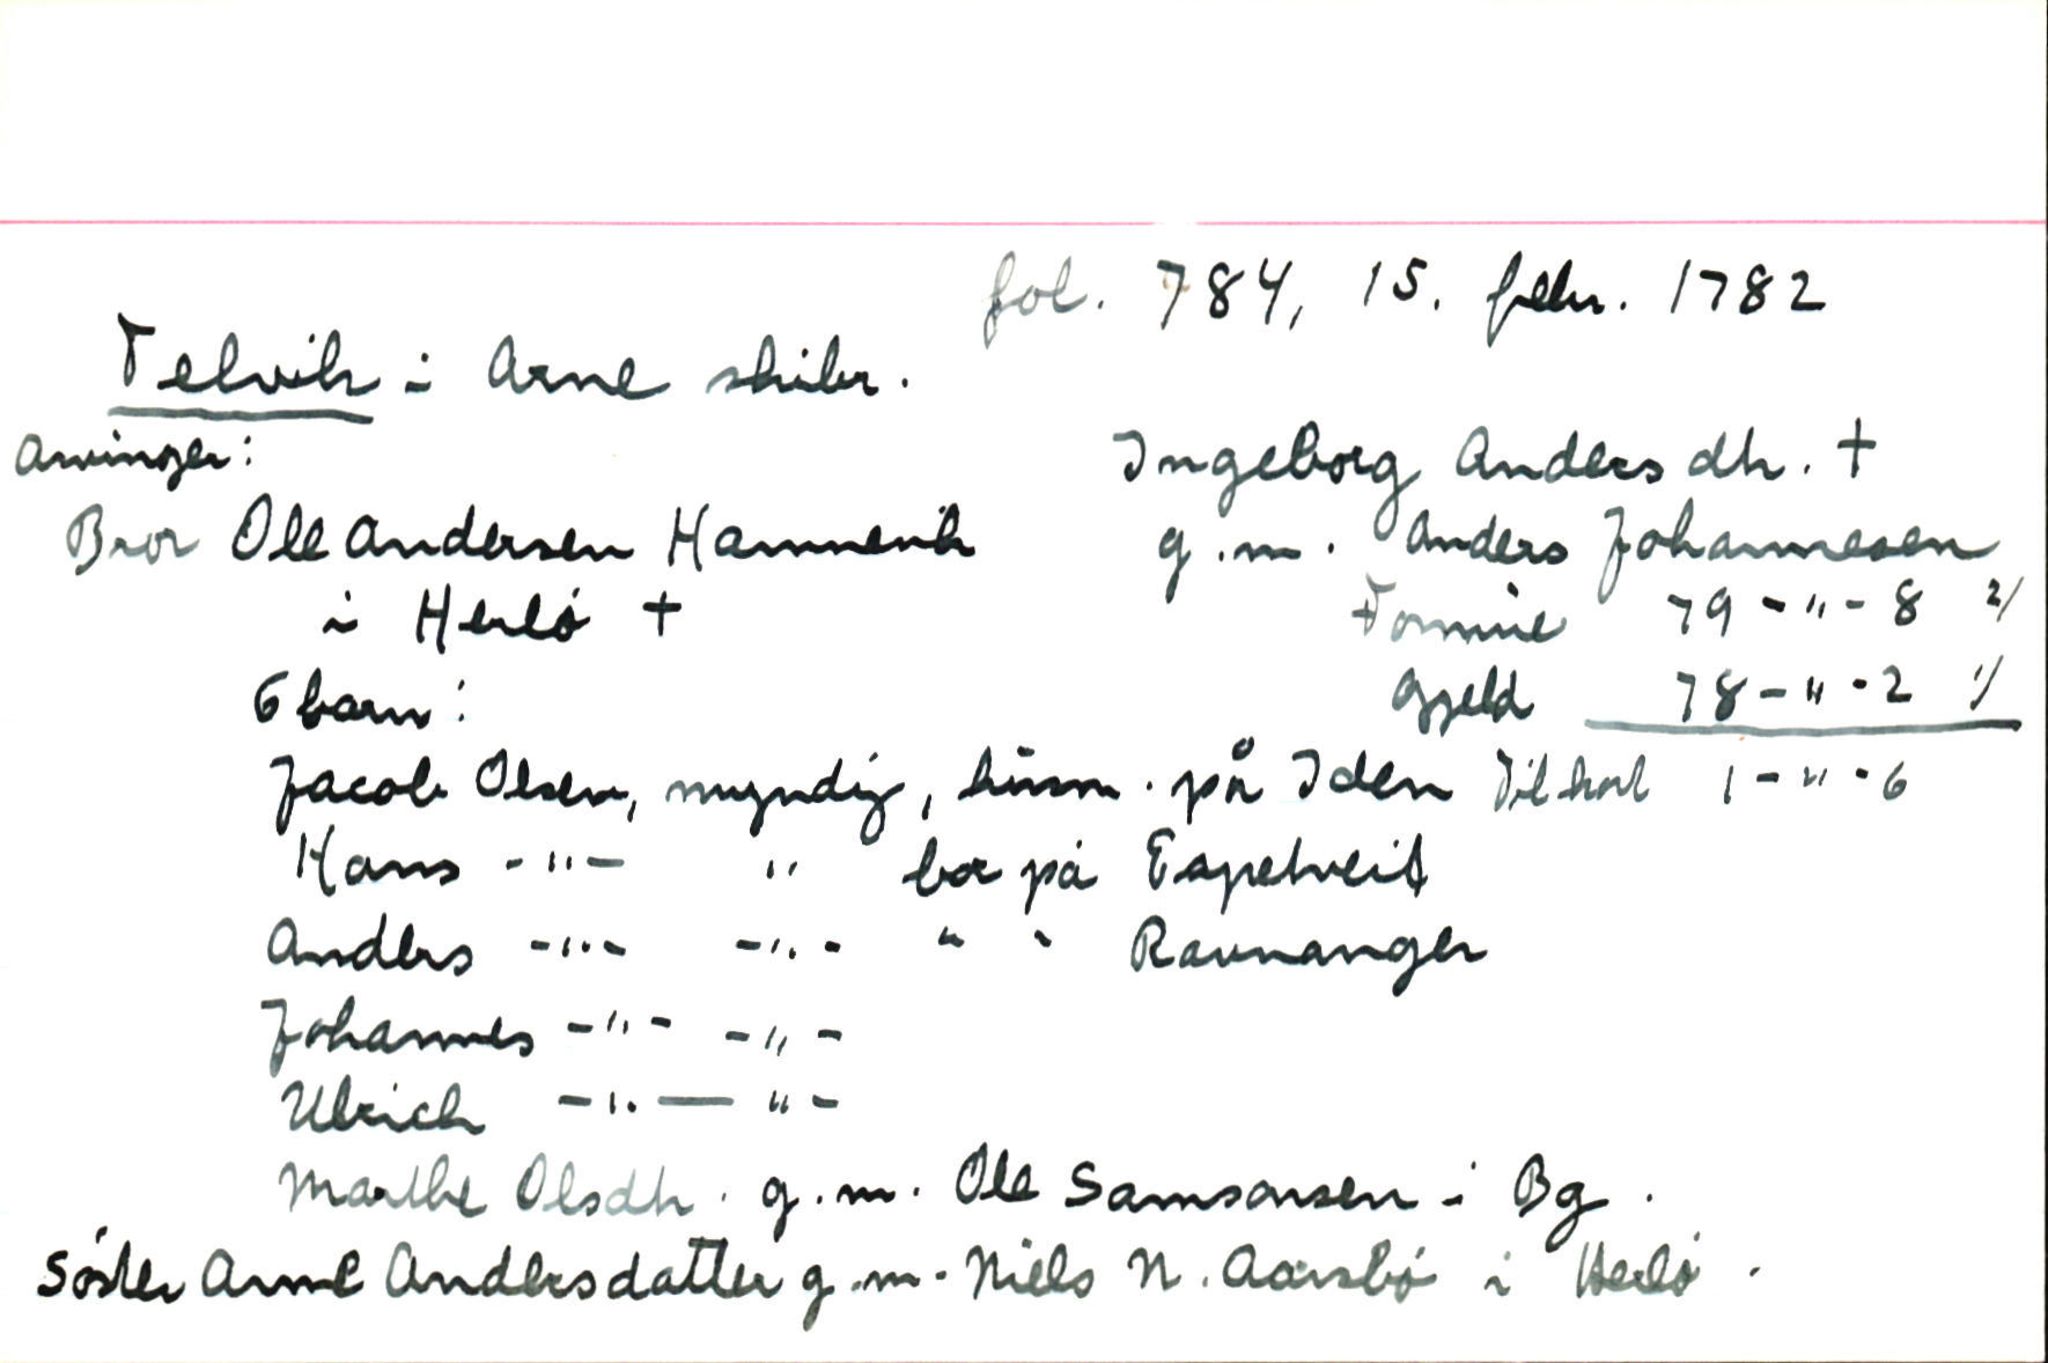 fol. 784, 15. febr. 1782
Telvik i Arne skibr.
Arvinger:
Ingeborg Andersdtr. +
g.m. Anders Johannesen
Bror Ole Andersen Hamnevik
i Herlö +
Formue 79 - " - 8 2/
Gjeld 78 - " - 2 1/
6 barn:
Jacob Olsen, myndig, husm. på Iden Til hovl 1 - " - 6
Hans - " - " bor på Espetveit
Anders - " - - " - " " Ravnanger
Johannes - " - - " -
Ulrich - " - " -
Marthe Olsdtr. g.m. Ole Samsonsen i Bg.
Söster Arne Andersdatter g.m. Niels N. Aarsbö i Herlö.